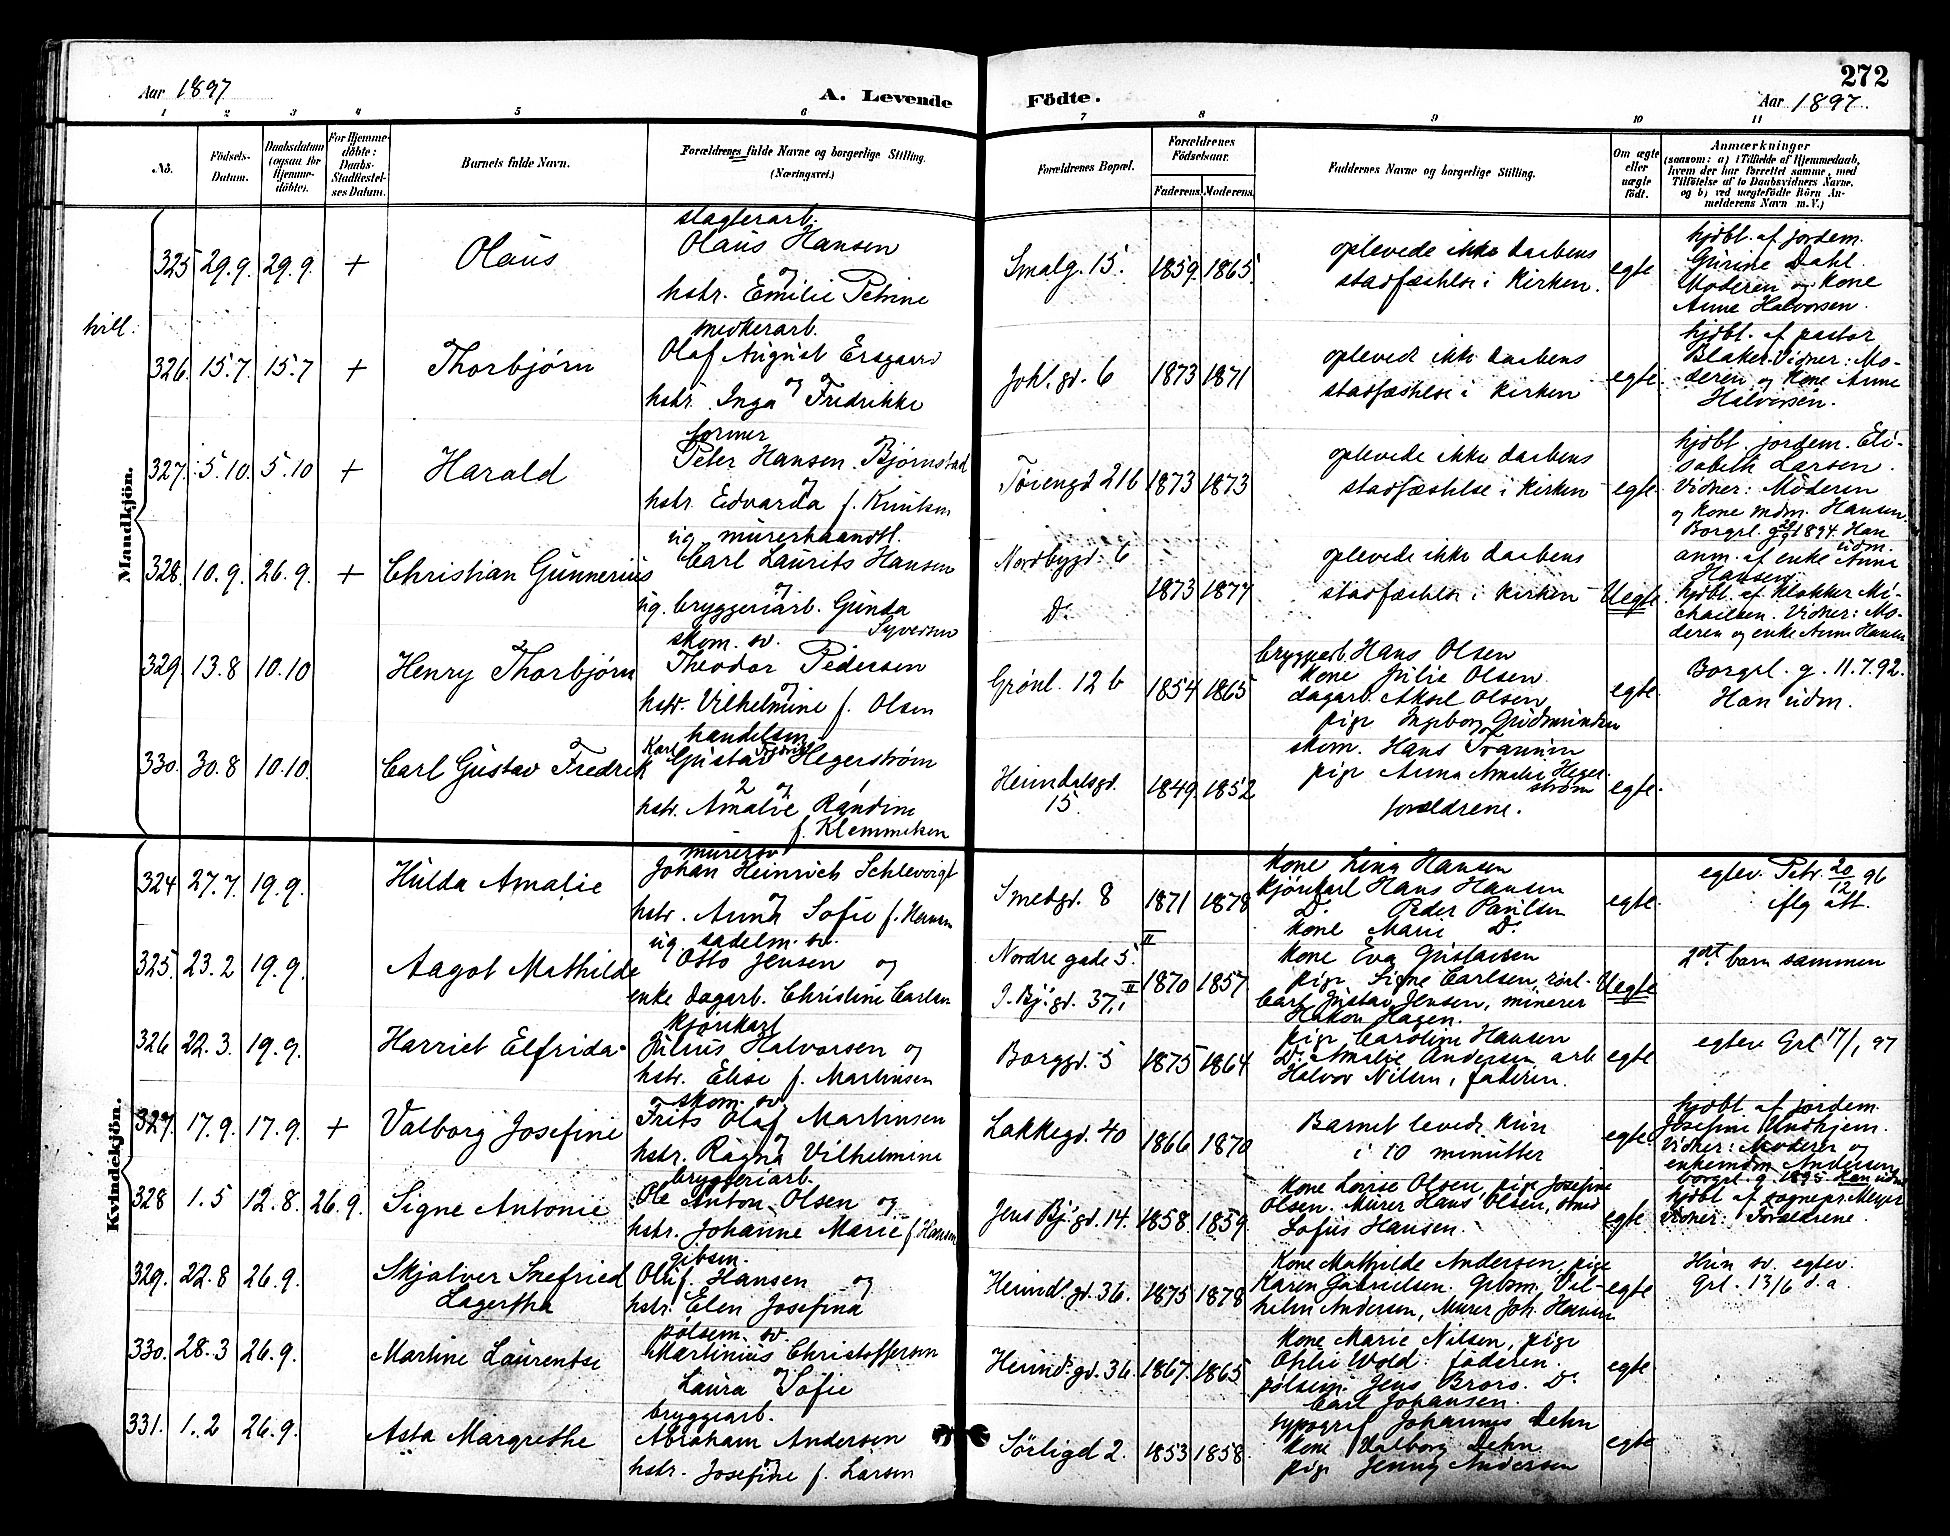 272
Aar 1897
A. Levende
Födte.
Aar 1897.
1 2 3 4 5 6 7 8 9 10 11
No.
Födsels-
Datum.
Daabsdatum
(ogsaa for
Hjemme-
döbte).
For Hjemme-
döbte:
Daabs-
Stadfæstel-
ses Datum.
Barnets fulde Navn.
Forældrenes fulde Navne og borgerlige Stilling.
(Næringsvei.)
Forældrenes Bopæl.
Forældrenes
Födselsaar.
Faderens.
Moderens.
Faddernes Navne og borgerlige Stilling.
Om ægte
eller
uægte
födt.
Anmærkninger
(saasom: a) i Tilfælde af Hjemmedaab,
hvem der har forrettet samme, med
Tilföielse af to Daabsvidners Navne,
og b) ved uægtefödte Börn An-
melderens Navn m. V.)
Mandkjön.
325 29.9. 29.9. + Olaus
slagterarb.
Olaus Hansen
og
hstr. Emilie Petrine
Smalg. 15. 1859. 1865.
oplevede ikke daabens
stadfæstelse i kirken.
egte
hjdbt. af jordem.
Gurine Dahl.
Moderen og kone
Anne Halvorsen.
326. 15.7. 15.7 + Thorbjørn
Olaf August
og
hstr. Inga Fredrikke
Joh.gd. 6 1873 1871
oplevede ikke daabens
stadfæstelse i kirken
egte.
hjdbt. af pastor
Blaker. Vidner: Mo-
deren og kone Anne
Halvorsen.
327. 5.10. 5.10 + Harald
former
Peter Hansen Bjørnstad
og
hstr. Edvarda f. Knutsen
Tøiengd 21b 1873 1873
oplevede ikke daabens
stadfæstelse i kirken
egte.
hjdbt. jordem. Eli-
sabeth Larsen.
Vidner: Moderen
og kone mdm. Hansen.
328. 10.9. 26.9. + Christian Gunnerius
ug. murerhaandtl.
Carl Laurits Hansen
og
ug. bryggeriarb. Gunda
Syversen
Nordbygd. 6
Do
1873 1877
oplevede ikke daabens
stadfæstelse i kirken
Uegte.
Borgrl. 1894. Han
udm.
anm. af enke Anne
Hansen.
hjdbt. af klokker Mi-
chailsen. Vidner: Mo-
deren og enke Anne Hansen
329 13.8 10.10 Henry Thorbjørn
skom. sv.
Theodor Pedersen
og
hstr. Vilhelmine f. Olsen
Grønl. 12b 1854 1865
bryggeab. Hans Olsen
kone Julie Olsen.
dagarb. Aksel Olsen
pige Ingeborg Gudmundsen
egte.
Borgrl. g. 11.7.92.
Han udm.
330. 30.8 10.10. Carl Gustav Fredrik
handelsm.
Karl Gustav Fredrik Hegerstrøm
og
hstr. Amalie Randine
f. Klemmetsen
Heimdalsgd.
15.
1849. 1852
skom. Hans
pige Anna Amalie Heger-
strøm
forældrene.
egte.
Kvindekjön.
324 27.7. 19.9. Hulda Amalie
murersv
Johan Heinrich Schlevoigt
og
hstr. Anna Sofie f. Hansen
Smedgd. 8 1871 1878
kone Lina Hansen
kjørekarl Hans Hansen
Do Peder Paulsen
kone Marie Do
egte.
egtev. Petr. 20/12 96
iflg att.
325. 23.2 19.9. Aagot Mathilde
ug. sadelm. sv.
Otto Jensen og
enke dagarb. Christine Carlsen
Nordre gade 5. II
J. Bj. gd. 37, II
1870 1857
kone Eva Gustavsen
pige Signe Carlsen,
Carl Gustav Jensen, minerer
Hakon Hagen.
Uegte
2det barn sammen
326 22.3. 19.9. Harriet Elfrida
kjørekarl
Julius Halvorsen og
hstr. Elise f. Martinsen
Borggd. 5 1875 1864
pige Caroline Hansen
Do Amalie Andersen, arb
Halvor Nilsen, faderen.
egte
egtev Grl 17/1 97
327. 17.9. 17.9. + Valborg Josefine
skom. sv.
Frits Olaf Martinsen
og
hstr. Ragna Vilhelmine
Lakkegd. 40 1866 1870
Barnet levede kun
i 10 minutter
egte
hjdbt. af jordem.
Josefine Undhjem.
Vidner: Moderen og
enkemdm. Andersen
328 1.5 12.8. 26.9. Signe Antonie
bryggeriarb.
Ole Anton Olsen og
hstr. Johanne Marie f. Hansen
Jens Bj. gd. 14. 1858. 1859
kone Lovise Olsen, pige Josefine
Olsen. Murer Hans Olsen, smed
Lofus Hansen.
egte
borgrl. g. 1895. Han udm
hjdbt af sognepr. Meyer
Vidner: Forældrene.
329. 22.8 26.9. Skjalver Snefried
Lagertha
gibsm.
Oluf Hansen og
hstr. Elen Josefina
Heimd. gd. 36. 1875 1878
kone Mathilde Andersen, pige
Karen Gabrielsen. Gibsm. Vil-
helm Andersen, Murer Joh. Hansen
egte
Hun sv. egtev.
Grl. 13/6 d. a.
330. 28.3 26.9. Martine Laurentse
pølsem. sv.
Martinius Christoffersen
og
Laura Sofie
Heimd. gd. 36. 1867. 1865
kone Marie Nilsen, pige
Oplie Wold. faderen.
pølsem. Jens Brors. Do
Carl Johansen.
egte
331. 1.2 26.9. Asta Margrethe
bryggeriarb.
Abraham Andersen
og
hstr. Josefine f. Larsen
Sørligd 2. 1853 1858.
typogref Johannes Dehn
kone Valborg Dehn
pige Jenny Andersen
egte